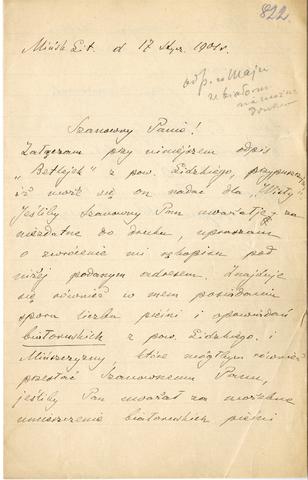 822.
Mińsk Lit. d 17 Stycz. 1901 r.
odp. w Maju
że białorus.
nie można
drukow.
Szanowny Panie!
Załączam przy niniejszem odpis
„Betlejek" z pow. Lidzkiego, przypuszczając
iż może się on nadać dla „Wisły".
Jeśliby Szanowny Pan uważał je za
niezdatne do druku, upraszam
o zwrócenie mi rękopisu pod
niżej podanym adresem. Znajduje
się również w mem posiadaniu
spora liczba pieśni i opowiadań
białoruskich z pow. Lidzkiego i
Mińszczyzny, które mógłbym również
przesłać Szanownemu Panu,
jeśliby Pan uważał za możebne
umieszczenie białoruskich pieśni